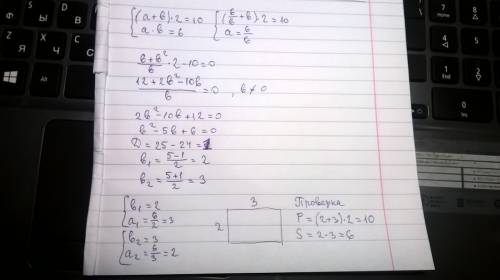 {(a+b)·2=10 {(6/b+b)·2=10
{a·b=6 {a=6/b
(6+b²)/b·2-10=0
(12+2b²-10b)/b=0, b≠0
2b²-10b+12=0
b²-5b+6=0
D=25-24=1
b₁=(5-1)/2=2
b₂=(5+1)/2=3
{b₁=2
{a₁=6/2=3
{b₂=3
{a₂=6/3=2
3
2
Проверка
P=(2+3)·2=10
S=2·3=6